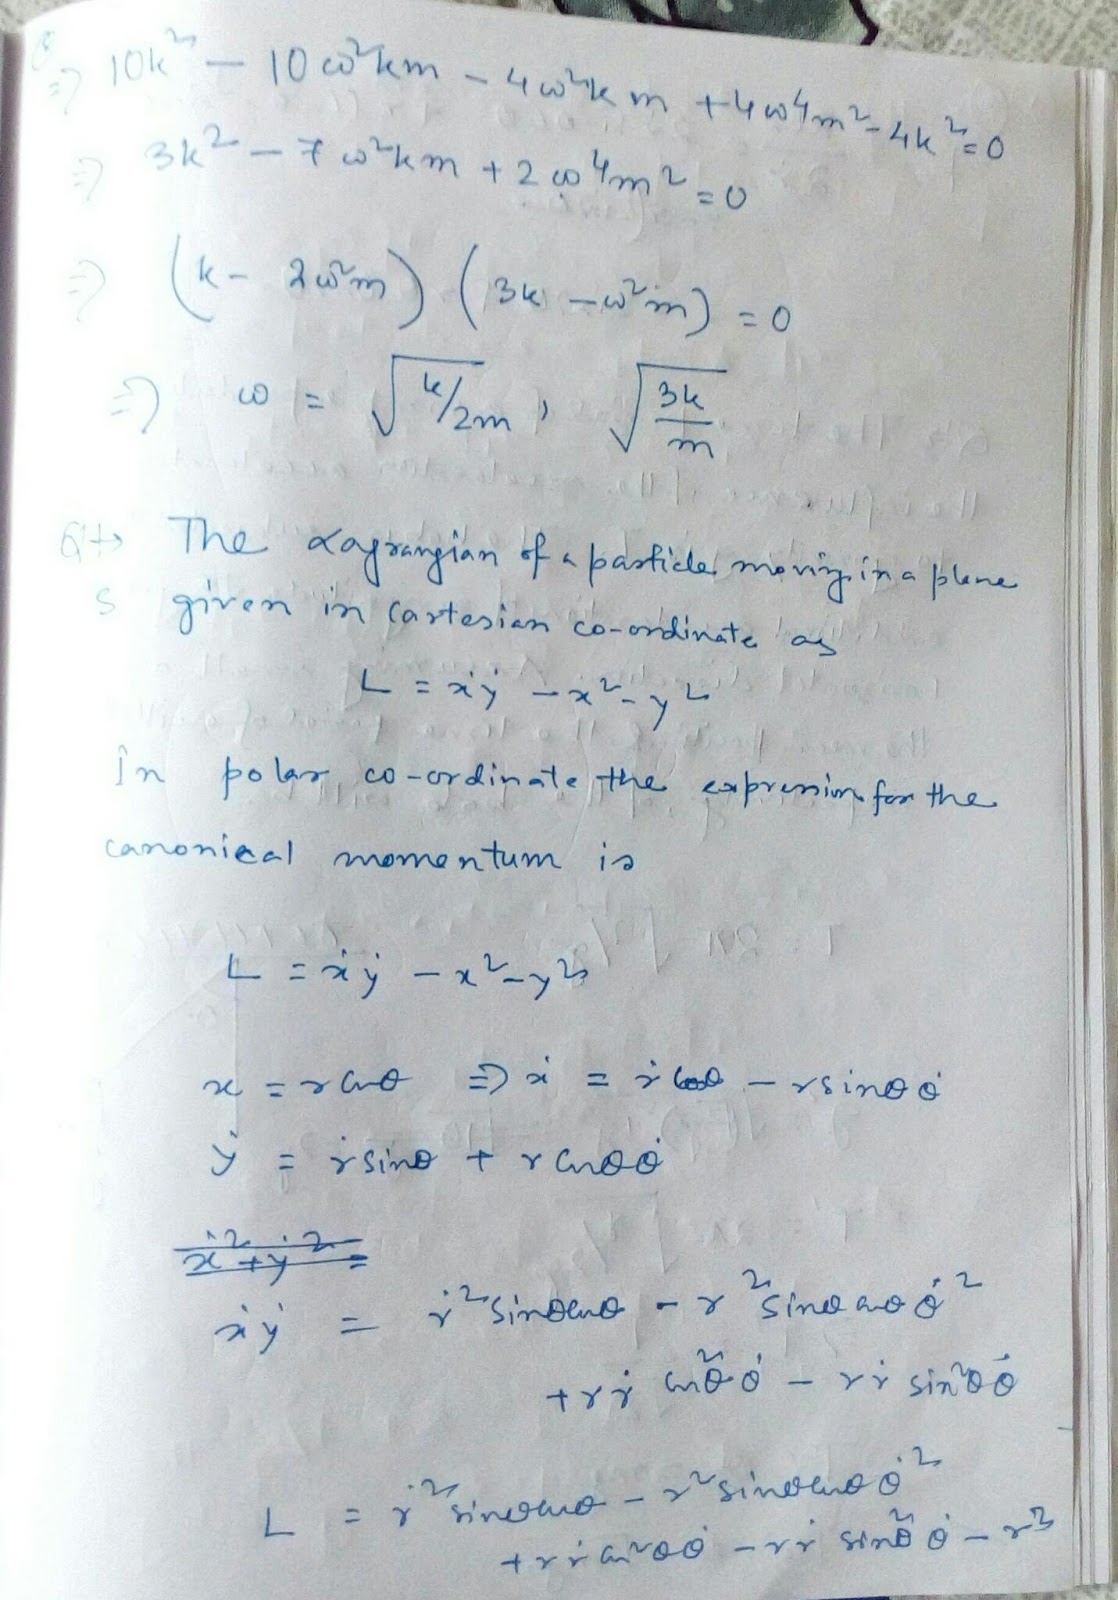 ⇒ 10k² − 10ω²km − 4ω²km + 4ω⁴m² − 4k² = 0
⇒ 3k² − 7ω²km + 2ω⁴m² = 0
⇒ (k − 2ω²m) (3k − ω²m) = 0
⇒ ω = √(k/2m) , √(3k/m)
The Lagrangian of a particle moving in a plane
S given in cartesian co-ordinate as
L = ẋẏ − x² − y²
In polar co-ordinate the expression for the
canonical momentum is
L = ẋẏ − x² − y²
x = r cosθ ⇒ ẋ = ṙ cosθ − r sinθ θ̇
ẏ = ṙ sinθ + r cosθ θ̇
ẋ² + ẏ² =
ẋẏ = ṙ² sinθ cosθ − r² sinθ cosθ θ̇²
+ r ṙ cos²θ θ̇ − r ṙ sin²θ θ̇
L = ṙ² sinθ cosθ − r² sinθ cosθ θ̇²
+ r ṙ cos²θ θ̇ − r ṙ sin²θ θ̇ − r²